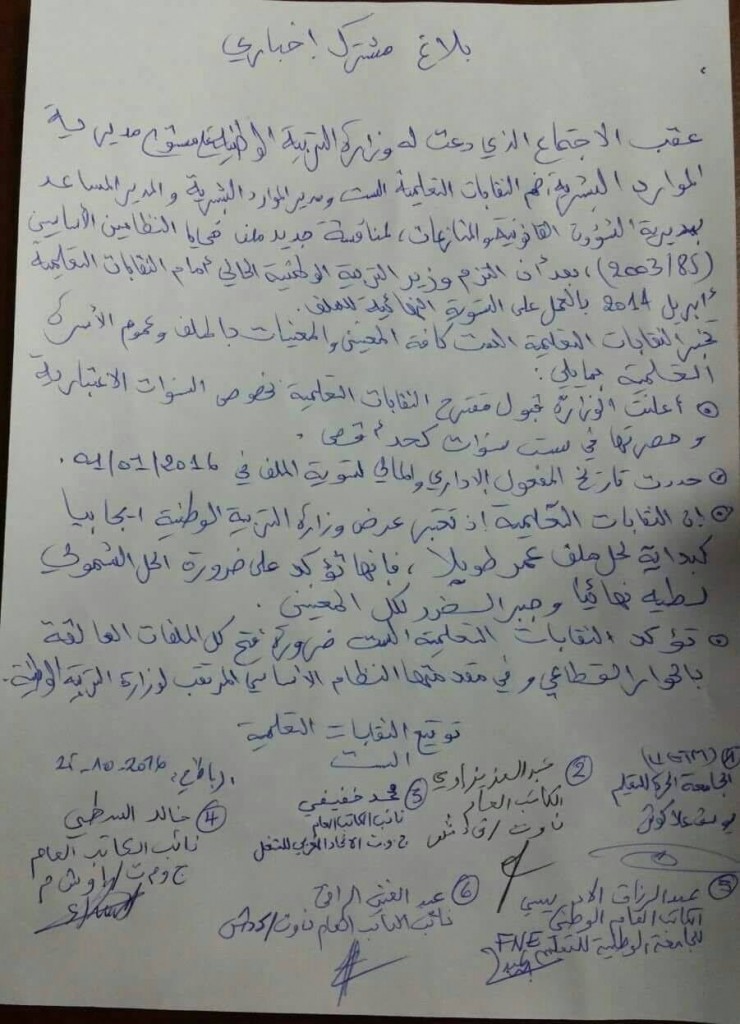 بلاغ مشترك إخباري
عقب الاجتماع الذي دعت له وزارة التربية الوطنية على مستوى مديرية
الموارد البشرية، ضم النقابات التعليمية الست ومدير الموارد البشرية والمدير المساعد
بمديرية الشؤون القانونية والمنازعات، لمناقشة جديد ملف ضحايا النظامين الأساسيين
(2003/85)، بعد أن التزم وزير التربية الوطنية الحالي أمام النقابات التعليمية
أبريل 2014 بالعمل على التسوية النهائية للملف.
تخبر النقابات التعليمية الست كافة المعنيين والمعنيات بالملف وعموم الأسرة
التعليمية بما يلي:
أعلنت الوزارة قبول مقترح النقابات التعليمية بخصوص السنوات الاعتبارية
وحصرتها في ست سنوات كحد أقصى.
حددت تاريخ المفعول الإداري والمالي لتسوية الملف في 01/01/2016.
إن النقابات التعليمية إذ تعتبر عرض وزارة التربية الوطنية إيجابيا
كبداية لحل ملف عمر طويلا، فإنها تؤكد على ضرورة الحل الشمولي
لطيه نهائيا وجبر الضرر لكل المعنيين.
تؤكد النقابات التعليمية الست ضرورة فتح كل الملفات العالقة
بالحوار القطاعي وفي مقدمتها النظام الأساسي المرتقب لوزارة التربية الوطنية.
توقيع النقابات التعليمية
الست
الرباط في، 25-10-2016
1 (UGTM)
الجامعة الحرة للتعليم
يوسف علاكوش
2 عبد العزيز إوي
الكاتب العام
ن و ت / ف د ش
3 محمد خفيفي
نائب الكاتب العام
ج و ت الاتحاد المغربي للشغل
4 خالد السطي
نائب الكاتب العام
ج و م ت / ا و ش م
5 عبد الرزاق الإدريسي
الكاتب العام الوطني
للجامعة الوطنية للتعليم FNE
6 عبد الغني الراقي
نائب الكاتب العام ن و ت / ك د ش